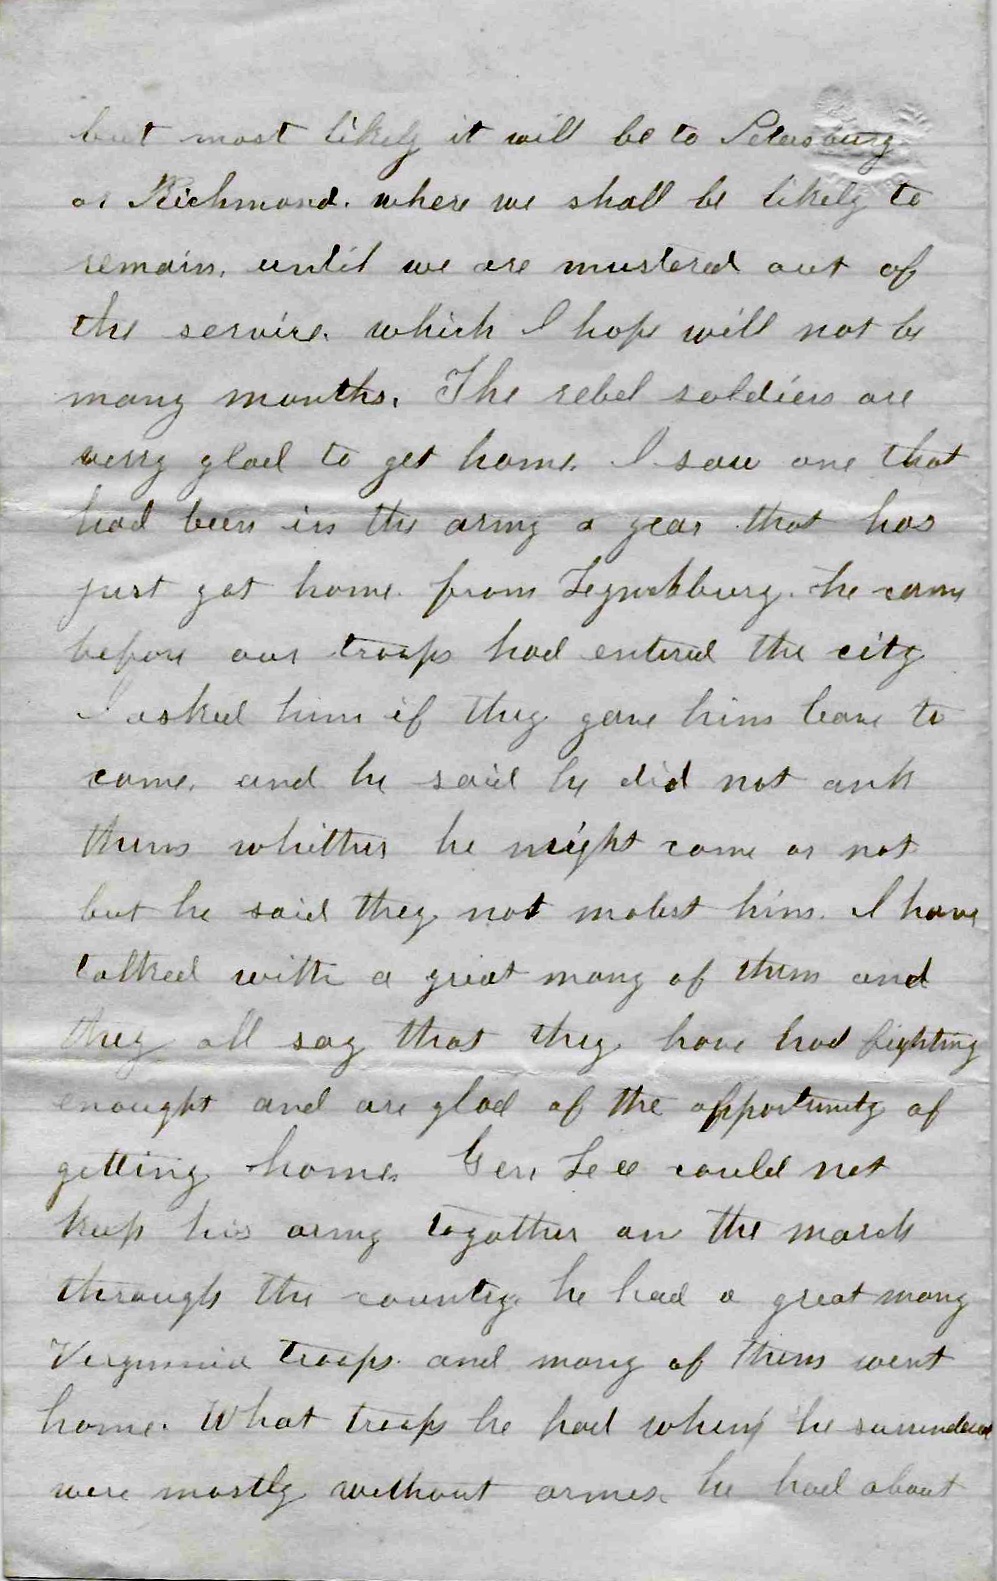 but most likely it will be to Petersburg
or Richmond. where we shall be likely to
remain, until we are mustered out of
the service. which I hope will not be
many months. The rebel soldiers are
very glad to get home. I saw one that
had been in the army a year that has
just got home from Lynchburg. he came
before our troops had entered the city
I asked him if they gave him leave to
come, and he said he did not ask
them whither he might come or not
but he said they not molest him. I have
talked with a great many of them and
they all say that they have had fighting
enought and are glad of the opportunity of
getting home. Gen Lee could not
keep his army togather on the march
through the country. he had a great many
Virginnia troops. and many of them went
home. What troops he had when he surrendered
were mostly without armes. he had about